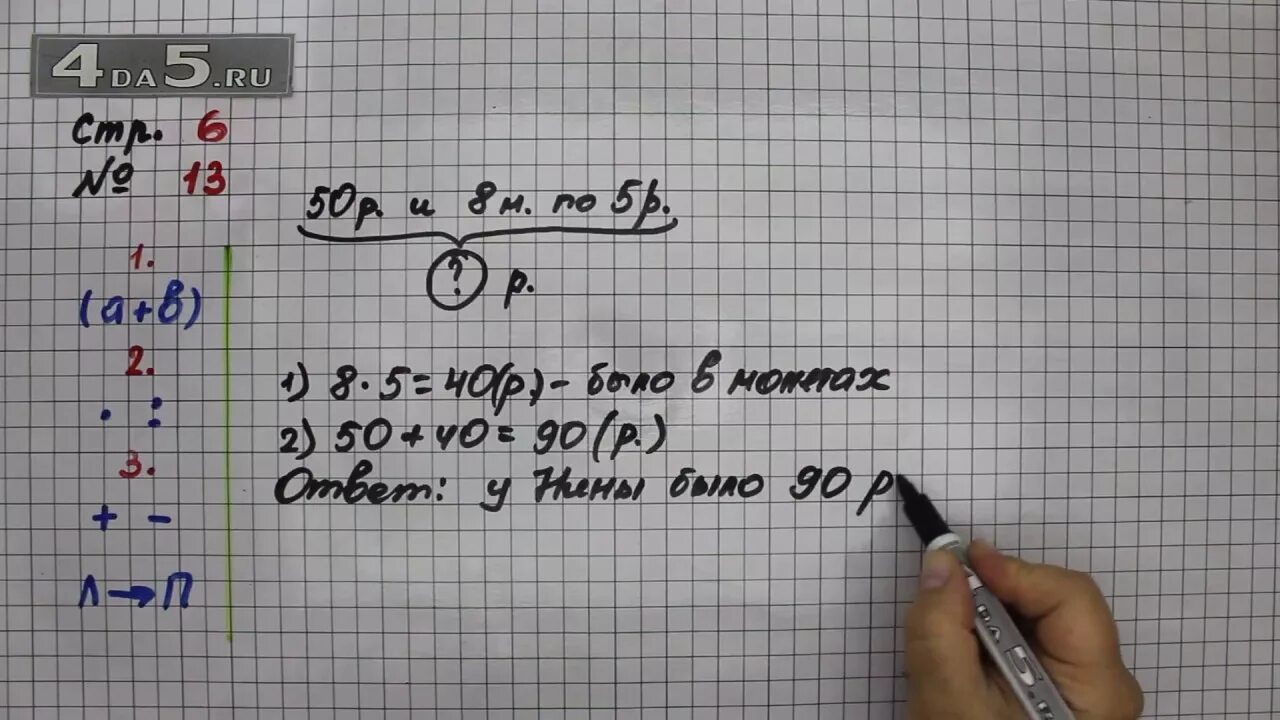 4DA5.RU
Стр. 6
№ 13
1.
(а+в)
2.
· :
3.
+ -
Л→П
50р. и 8м. по 5р.
? р.
1) 8·5=40(р.)- было в монетах
2) 50+40=90(р.)
Ответ: у Нины было 90 р